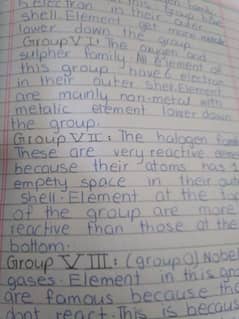 electron in their outer
shell. Element get more
lower down the group.
Group VI: The oxygen and
sulpher family. All element of
this group have 6 electron
in their outer shel. Element
are mainly non-metal with
metalic element lower down
the group.
Group VII: The halogen
These are very reactive
because their atoms has 1
empety space in their
shell. Element at the top
of the group are more
reactive than those at the
bottom.
Group VIII: (group 0) Nobel
gases. Element in this
are famous because
dont react. This is